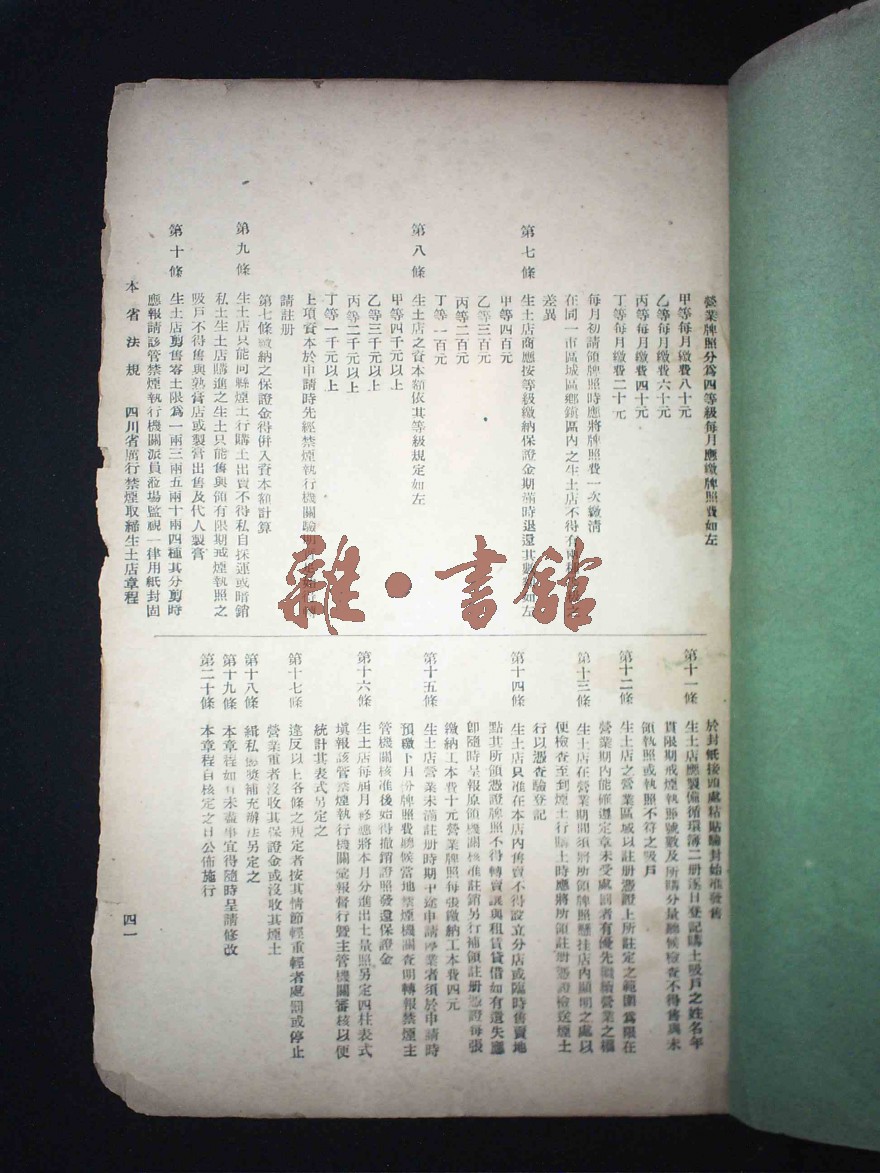 營業牌照分為四等級每月應繳牌照費如左
甲等每月繳費八十元
乙等每月繳費六十元
丙等每月繳費四十元
丁等每月繳費二十元
每月初請領牌照時應將牌照費一次繳清
在同一市區城區鄉鎮區內之生土店不得有兩種
差異
第七條 生土店商應按等級繳納保證金期滿時退還其數如左
甲等四百元
乙等三百元
丙等二百元
丁等一百元
第八條 生土店之資本額依其等級規定如左
甲等四千元以上
乙等三千元以上
丙等二千元以上
丁等一千元以上
上項資本於申請時先經禁煙執行機關驗明
請註册
第七條繳納之保證金得併入資本額計算
第九條 生土店只能向縣煙土行購土出賣不得私自採運或暗銷
私土生土店購進之生土只能售與領有限期戒煙執照之
吸戶不得售與熟膏店或製膏出售及代人製膏
第十條 生土店剪售零土限為一兩三兩五兩十兩四種其分剪時
應報請該管禁煙執行機關派員蒞場監視一律用紙封固
本省法規 四川省厲行禁煙取締生土店章程
於封紙接頭處粘貼驗封始准發售
第十一條 生土店應製備循環簿二册逐日登記購土吸戶之姓名年
貫限期戒煙執照號數及所購分量聽候檢查不得售與未
領執照或執照不符之吸戶
第十二條 生土店之營業區域以註册憑證上所註定之範圍為限在
營業期內能確遵定章未受處罰者有優先領續營業之權
第十三條 生土店在營業期間須將所領牌照懸挂店內顯明之處以
便檢查至到煙土行購土時應將所領註册憑證檢送煙土
行以憑查驗登記
第十四條 生土店只准在本店內售賣不得設立分店或臨時售賣地
點其所領憑證牌照不得轉賣讓與租賃貸借如有遺失應
卽隨時呈報原領機關核准註銷另行補領註册憑證每張
繳納工本費十元營業牌照每張繳納工本費四元
第十五條 生土店營業未滿註册時期中途申請停業者須於申請時
預繳下月份牌照費聽候當地禁煙機關查明轉報禁煙主
管機關核准後始得撤銷證照發還保證金
第十六條 生土店每屆月終應將本月分進出土量照另定四柱表式
填報該管禁煙執行機關彙報督行暨主管機關審核以便
統計其表式另定之
第十七條 違反以上各條之規定者按其情節輕重輕者處罰或停止
營業重者沒收其保證金或沒收其煙土
第十八條 緝私懲獎補充辦法另定之
第十九條 本章程如有未盡事宜得隨時呈請修改
第二十條 本章程自核定之日公佈施行
四一
雜·書館